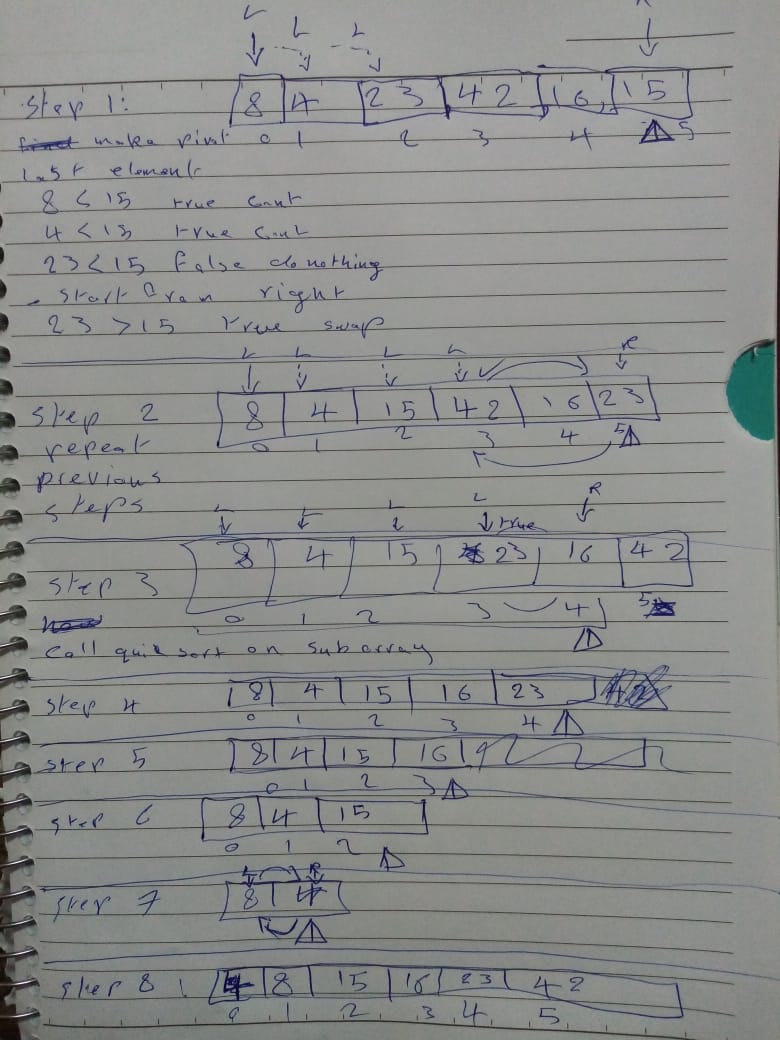 L L L R
Step 1: 8 4 23 42 16 15
make pivot 0 1 2 3 4 5
last element
8 < 15 true cont
4 < 15 true cont
23 < 15 false do nothing
- start from right
23 > 15 true swap
L L L L R
step 2 8 4 15 42 16 23
repeat 0 1 2 3 4 5
previous
steps
L L L L true R
step 3 8 4 15 23 16 42
0 1 2 3 4 5
Call quik sort on subarray
step 4 8 4 15 16 23
0 1 2 3 4
step 5 8 4 15 16
0 1 2 3
step 6 8 4 15
0 1 2
L R
step 7 8 4
step 8 4 8 15 16 23 42
0 1 2 3 4 5